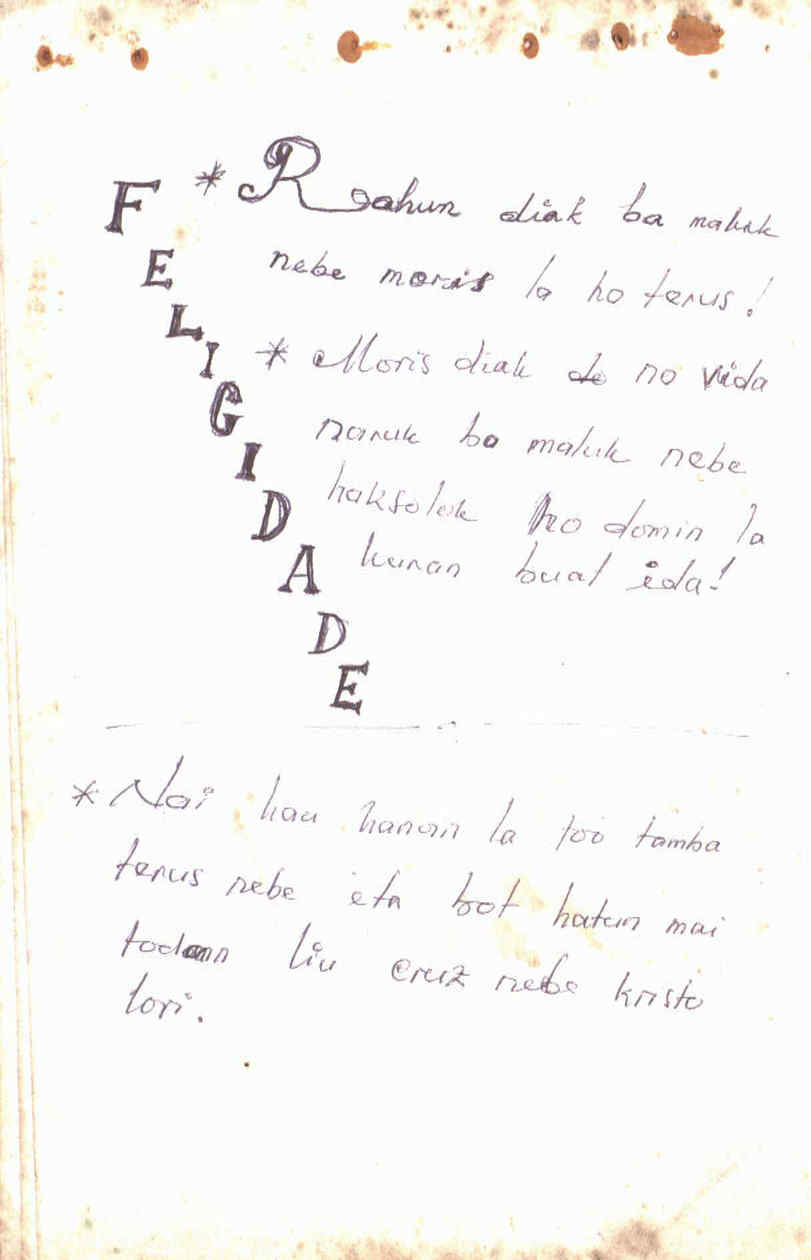 FELIGIDADE
* Rahun diak ba maluk
nebe moris la ho terus!
* Moris diak no vida
naruk ba maluk nebe
haksolok ho domin la
hunan bual ida!
* Nai hau hanoin la too tamba
terus nebe eta bot hatun mai
todan liu cruz nebe kristo
lori.